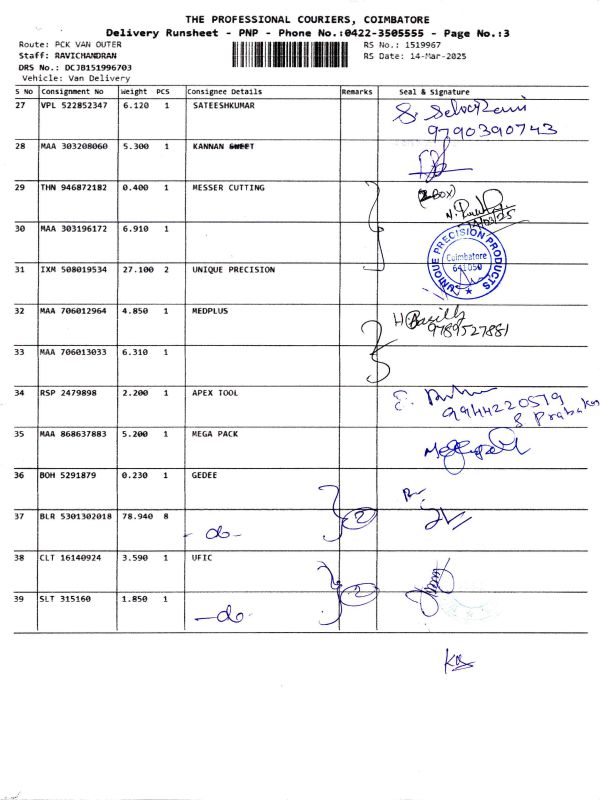 THE PROFESSIONAL COURIERS, COIMBATORE
Delivery Runsheet - PNP - Phone No.:0422-3505555 - Page No.:3
Route: PCK VAN OUTER RS No.: 1519967
Staff: RAVICHANDRAN RS Date: 14-Mar-2025
DRS No.: DCJB151996703
Vehicle: Van Delivery
S No Consignment No Weight PCS Consignee Details Remarks Seal & Signature
27 VPL 522852347 6.120 1 SATEESHKUMAR
9790390743
28 MAA 303208060 5.300 1 KANNAN SWEET
29 THN 946872182 0.400 1 MESSER CUTTING
(2 BOX)
30 MAA 303196172 6.910 1
UNIQUE PRECISION PRODUCTS
Coimbatore
641050
31 IXM 508019534 27.100 2 UNIQUE PRECISION
32 MAA 706012964 4.850 1 MEDPLUS
9789527881
33 MAA 706013033 6.310 1
34 RSP 2479898 2.200 1 APEX TOOL
9944220519
35 MAA 868637883 5.200 1 MEGA PACK
36 BOH 5291879 0.230 1 GEDEE
37 BLR 5301302018 78.940 8
- do - 2
38 CLT 16140924 3.590 1 UFIC
39 SLT 315160 1.850 1 2
- do -